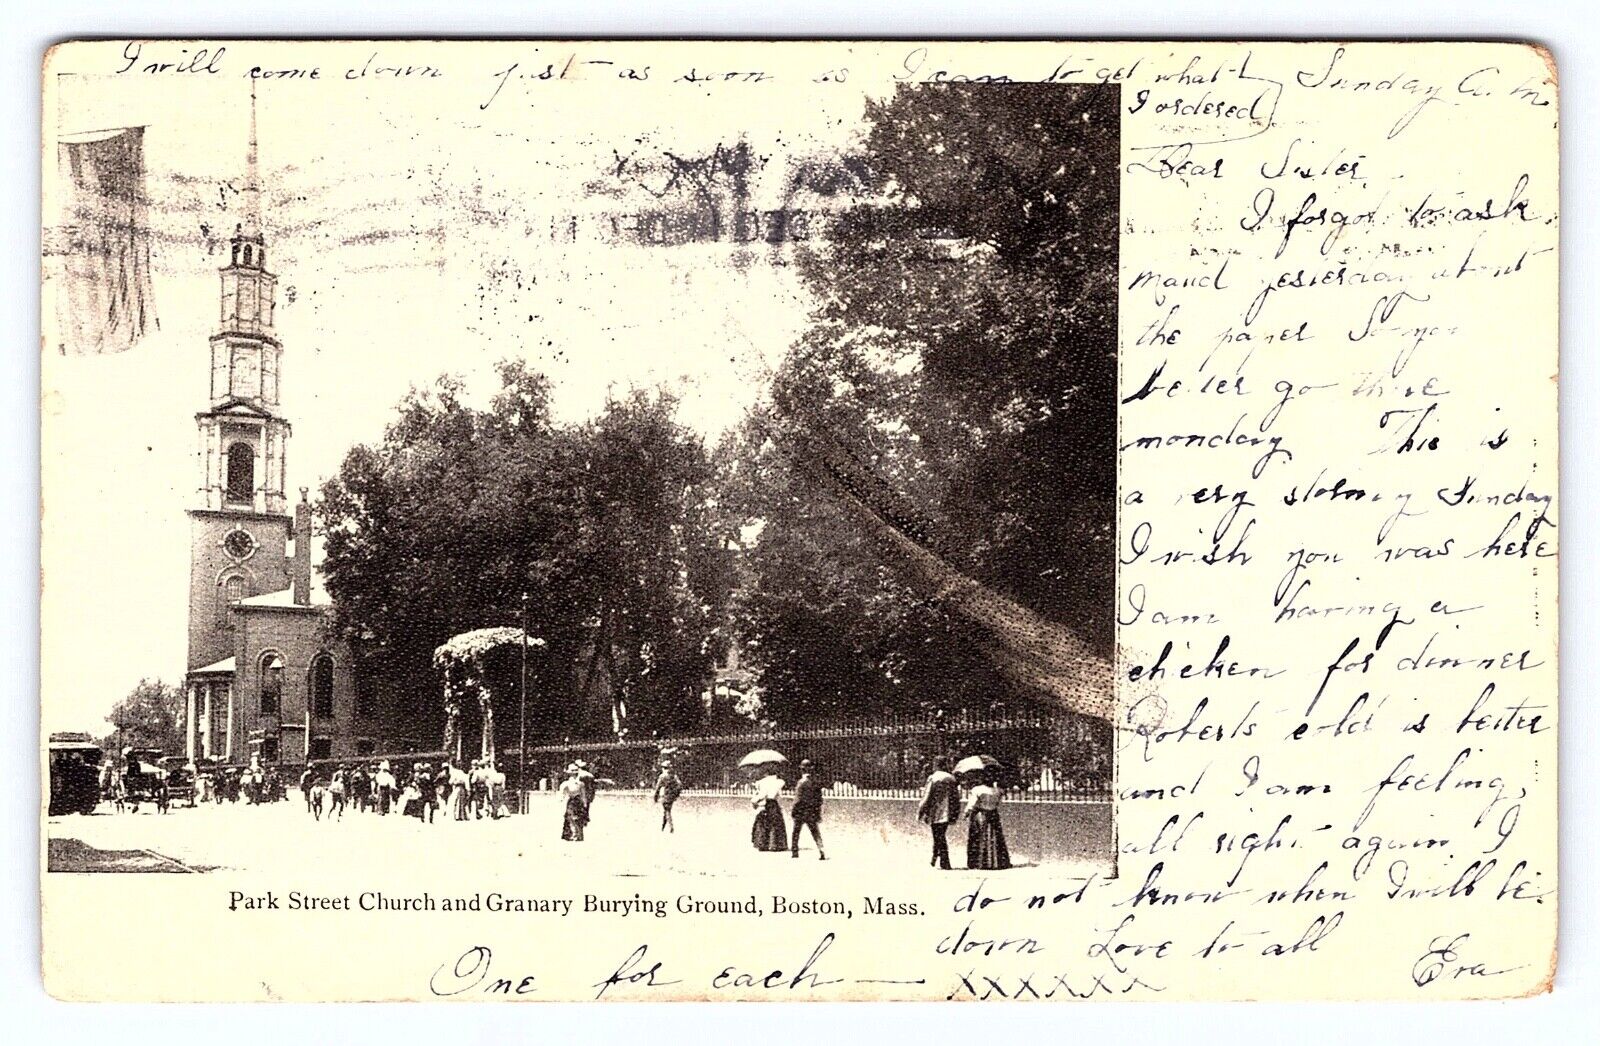 I will come down just as soon as I can to get what
I ordered
Sunday A.M.
Dear Sister
I forgot to ask
Maud yesterday about
the paper So you
better go there
monday This is
a very stormy Sunday
I wish you was here
I am having a
chicken for dinner
Roberts cold is better
and I am feeling
all right again I
do not know when I will be
down Love to all
Eva
One for each —
xxxxxx
Park Street Church and Granary Burying Ground, Boston, Mass.